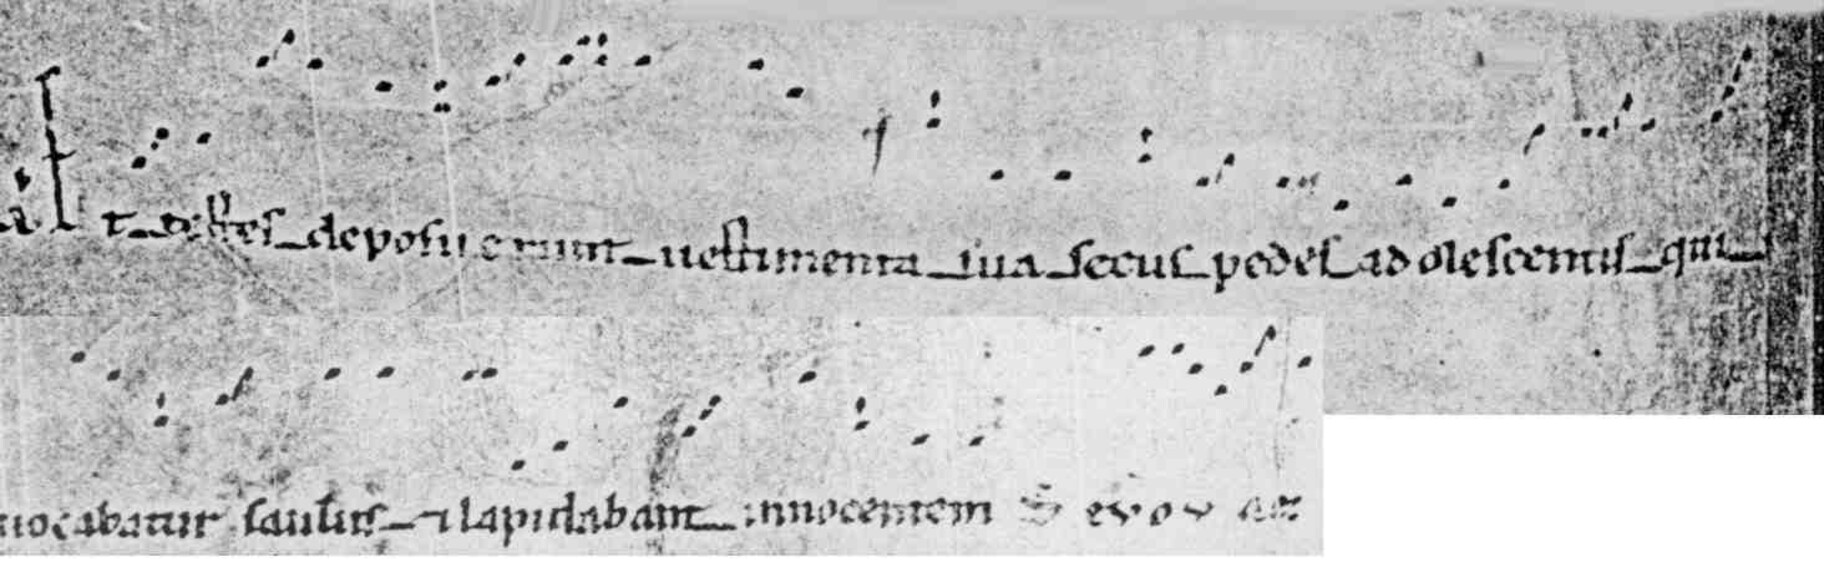 Et testes deposuerunt uestimenta sua secus pedes adolescentis qui
uocabatur saulus ⁊ lapidabant innocentem S evov ae